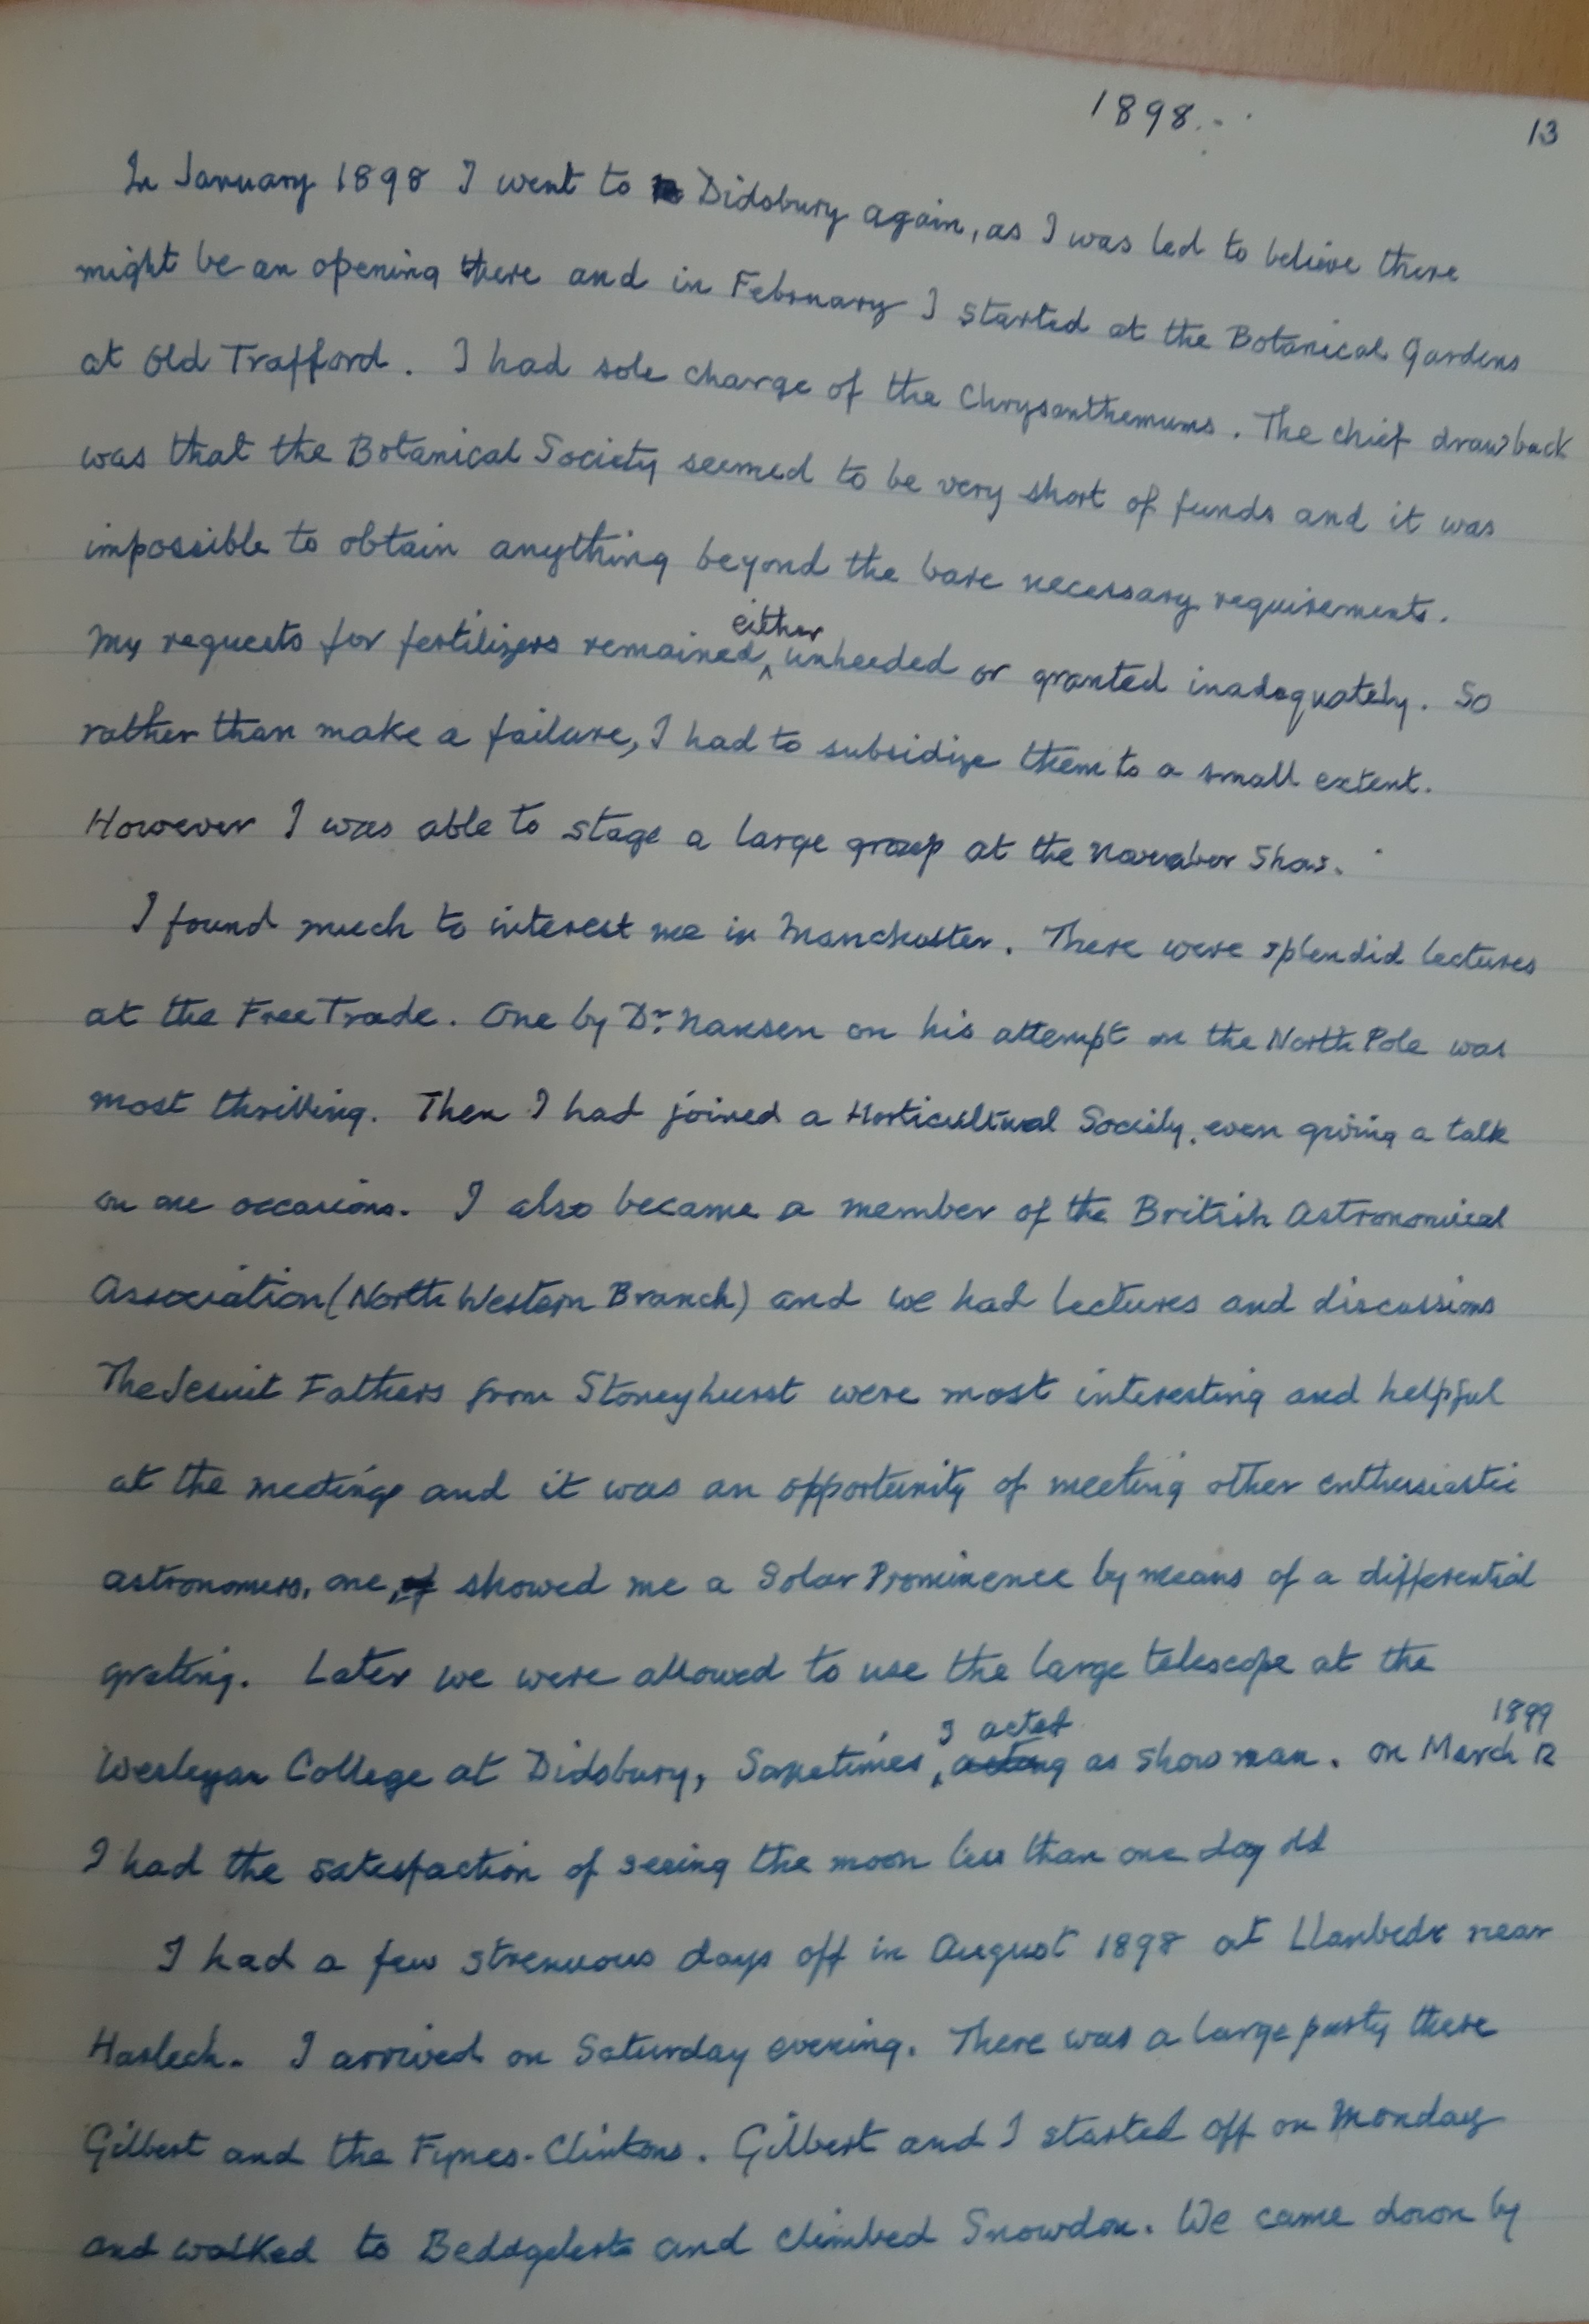 1898.-
13
In January 1898 I went to Didsbury again, as I was led to believe there
might be an opening there and in February I started at the Botanical Gardens
at Old Trafford. I had sole charge of the Chrysanthemums. The chief drawback
was that the Botanical Society seemed to be very short of funds and it was
impossible to obtain anything beyond the bare necessary requirements.
either
My requests for fertilizers remained ^ unheeded or granted inadequately. So
rather than make a failure, I had to subsidize them to a small extent.
However I was able to stage a large group at the November Show.
I found much to interest me in Manchester. There were splendid lectures
at the Free Trade. One by Dr. Nansen on his attempt on the North Pole was
most thrilling. Then I had joined a Horticultural Society, even giving a talk
on one occasions. I also became a member of the British Astronomical
Association (North Western Branch) and we had lectures and discussions
The Jesuit Fathers from Stoneyhurst were most interesting and helpful
at the meetings and it was an opportunity of meeting other enthusiastic
astronomers, one, of showed me a Solar Prominence by means of a differential
grating. Later we were allowed to use the large telescope at the
I acted 1899
Wesleyan College at Didsbury, Sometimes, acting as showman. On March 12
I had the satisfaction of seeing the moon less than one day old
I had a few strenuous days off in August 1898 at Llanbedr near
Harlech. I arrived on Saturday evening. There was a large party there
Gilbert and the Fynes-Clintons. Gilbert and I started off on Monday
and walked to Beddgelert and climbed Snowdon. We came down by